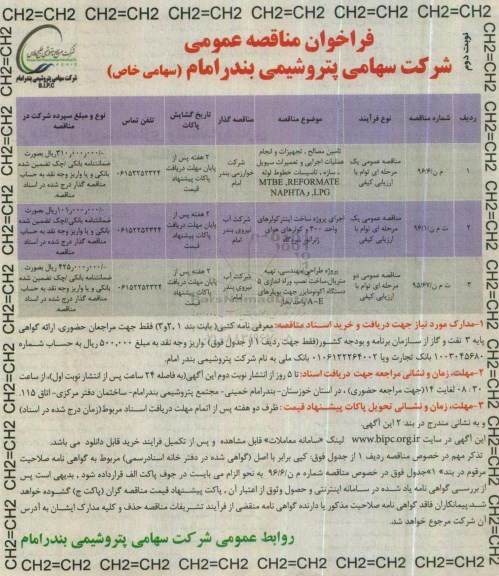 CH2=CH2 CH2=CH2 CH2=CH2 CH2=CH2 CH2=CH2 CH2=CH2 CH2=CH2
نوبت دوم
فراخوان مناقصه عمومی
شرکت سهامی پتروشیمی بندر امام (سهامی خاص)
شرکت سهامی پتروشیمی بندر امام
B.I.P.C
ردیف شماره مناقصه نوع فرآیند موضوع مناقصه مناقصه گذار تاریخ گشایش پاکات تلفن تماس نوع و مبلغ سپرده شرکت در مناقصه
۱ م ن/۹۶/۶ مناقصه عمومی یک مرحله ای توام با ارزیابی کیفی
تامین مصالح ، تجهیزات و انجام عملیات اجرایی و تعمیرات سیویل ، سازه ، تاسیسات خطوط لوله MTBE ,REFORMATE ,LPG و NAPHTA
شرکت خوارزمی بندر امام
۲ هفته پس از پایان مهلت دریافت پاکات پیشنهاد قیمت
۰۶۱۵۲۲۵۲۳۲۴
۳۱۰,۰۰۰,۰۰۰/-ریال بصورت ضمانتنامه بانکی /چک تضمین شده بانکی و یا واریز وجه نقد به حساب مناقصه گذار درج شده در اسناد مناقصه
۲ ت م ن/۹۶/۱ مناقصه عمومی یک مرحله ای توام با ارزیابی کیفی
اجرای پروژه ساخت اینترکولرهای واحد ۳۰۰ و کولرهای هوای ژنراتور نیروگاه
شرکت آب نیروی بندر امام
۲ هفته پس از پایان مهلت دریافت پاکات پیشنهاد قیمت
۰۶۱۵۲۲۵۲۳۲۴
۱۰۱,۰۰۰,۰۰۰ریال بصورت ضمانتنامه بانکی/چک تضمین شده بانکی و یا واریز وجه نقد به حساب مناقصه گذار درج شده در اسناد مناقصه
۳ ت م ن/۹۵/۶۷ مناقصه عمومی دو مرحله ای توام با ارزیابی کیفی
پروژه طراحی،مهندسی، تهیه متریال،ساخت نصب وراه اندازی ۵ دستگاه اکونومایزر جهت بویلرهای A-E واحد بخار
شرکت آب نیروی بندر امام
۲ هفته پس از پایان مهلت دریافت پاکات پیشنهاد قیمت
۰۶۱۵۲۲۵۲۳۲۴
۴۲۵,۰۰۰,۰۰۰ ریال بصورت ضمانتنامه بانکی/چک تضمین شده بانکی و یا واریز وجه نقد به حساب مناقصه گذار درج شده در اسناد مناقصه
۱-مدارک مورد نیاز جهت دریافت و خرید اسناد مناقصه: معرفی نامه کتبی( بابت بند ۱ ،۲و۳) فقط جهت مراجعان حضوری، ارائه گواهی
پایه ۳ نفت و گاز از سازمان برنامه و بودجه کشور(فقط جهت ردیف ۱ از جدول فوق) واریز وجه نقد به مبلغ ۵۰۰,۰۰۰ ریال به حساب شماره
۱۰۰۳۰۴۵۶۸۰ بانک تجارت ویا ۰۱۰۶۱۲۲۲۶۴۰۰۲ بانک ملی به نام شرکت پتروشیمی بندر امام.
۲-مهلت، زمان و نشانی مراجعه جهت دریافت اسناد: تا ۵ روز از انتشار نوبت دوم این آگهی(به فاصله ۲۴ ساعت پس از انتشار نوبت اول)،از ساعت
۰۸:۳۰ لغایت ۱۴(جهت مراجعه حضوری) ، در استان خوزستان- بندرامام خمینی- مجتمع پتروشیمی بندرامام-ساختمان دفتر مرکزی- اتاق ۱۱۵.
۳-مهلت، زمان و نشانی تحویل پاکات پیشنهاد قیمت : ظرف دو هفته پس از اتمام مهلت دریافت اسناد مربوط(زمان درج شده در اسناد)
و به نشانی مندرج در بند ۲ این آگهی.
این آگهی در سایت www.bipc.org.ir لینک «سامانه معاملات» قابل مشاهده و پس از تکمیل فرایند خرید قابل دانلود می باشد.
تذکر مهم در خصوص مناقصه ردیف ۱ از جدول فوق: کپی برابر با اصل (گواهی شده در دفتر خانه اسنادرسمی) مربوط به گواهی نامه صلاحیت
مرقوم در بند« ۱»جدول فوق در خصوص مناقصه شماره م ن/۹۶/۶ به نحو الزام می بایست در جوف پاکت الف قرارداده شود , بدیهی است پس
از بررسی گواهی نامه یاد شده در سامانه اینترنتی و حصول وثوق از اعتبار آن ، پاکت پیشنهاد قیمت مناقصه گران (پاکت ج) گشوده خواهد
شد.پیمانکاران فاقد گواهی نامه صلاحیت مذکور یا دارنده گواهی نامه منقضی از فرآیند تشریفات مناقصه حذف و کلیه مدارک ایشان به آدرس
آن شرکت مرجوع خواهد شد.
روابط عمومی شرکت سهامی پتروشیمی بندرامام
CH2=CH2 CH2=CH2 CH2=CH2 CH2=CH2 CH2=CH2 CH2=CH2 CH2=CH2